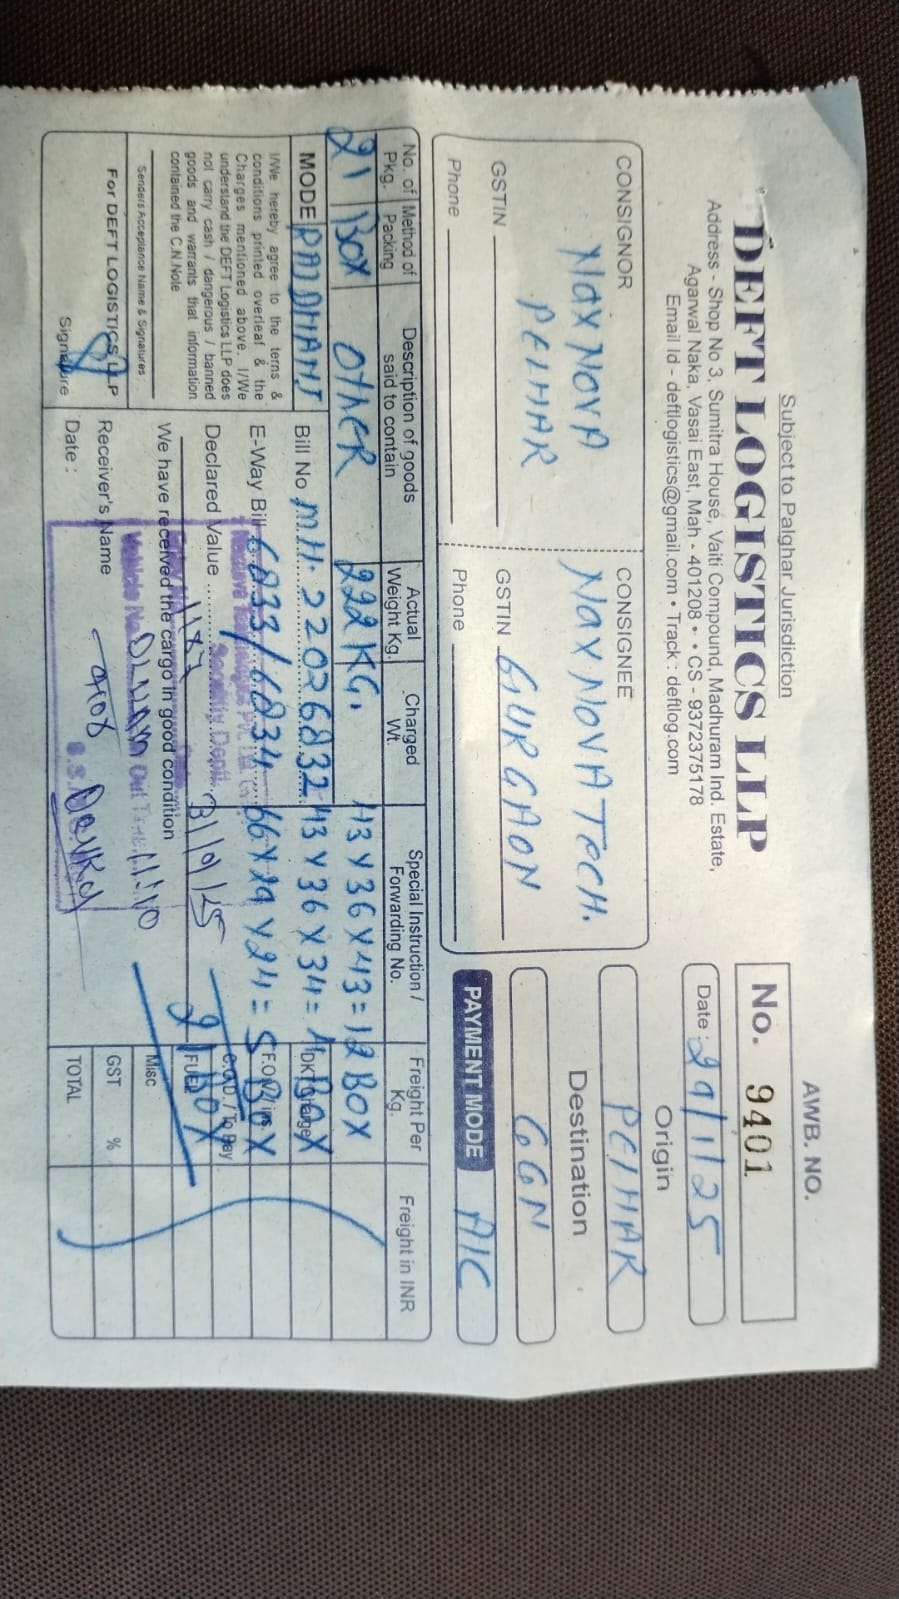 Subject to Palghar Jurisdiction
DEFT LOGISTICS LLP
Address - Shop No 3, Sumitra House, Vaiti Compound, Madhuram Ind. Estate,
Agarwal Naka, Vasai East, Mah - 401208 • • CS - 9372375178
Email Id - deftlogistics@gmail.com • Track : deftlog.com
AWB. NO.
No. 9401
Date : 29/1/25
CONSIGNOR
NAX NOVA
PELHAR
GSTIN
Phone
CONSIGNEE
NAX NOVA TECH.
GURGAON
GSTIN
Phone
Origin
PELHAR
Destination
GGN
PAYMENT MODE AIC
No. of Pkg. Method of Packing Description of goods said to contain Actual Weight Kg. Charged Wt. Special Instruction / Forwarding No. Freight Per Kg. Freight in INR
21 BOX OTHER 222 KG. 43 X 36 X 43 = 12 BOX
MODE Bill No. M.H. 2206832 43 X 36 X 34 = BOX
DKT Charge
I/We hereby agree to the terns &
conditions printed overleaf & the
Charges mentioned above. I/We
understand the DEFT Logistics LLP does
not carry cash / dangerous / banned
goods and warrants that information
contained the C.N.Note
E-Way Bill 6833/6834 66 X 29 X 24 = BOX
Declared Value
Security Deptt.
31/9/25
21 BOX
C.O.D. / To Pay
FUEL
We have received the cargo in good condition
Misc
Senders Acceptance Name & Signatures :
For DEFT LOGISTICS LLP
Signature
Receiver's Name
Date :
GST %
TOTAL